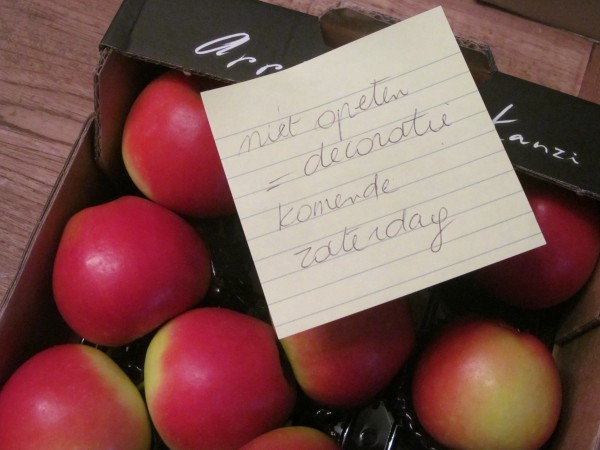 niet opeten
= decoratie
komende
zaterdag
Kanzi